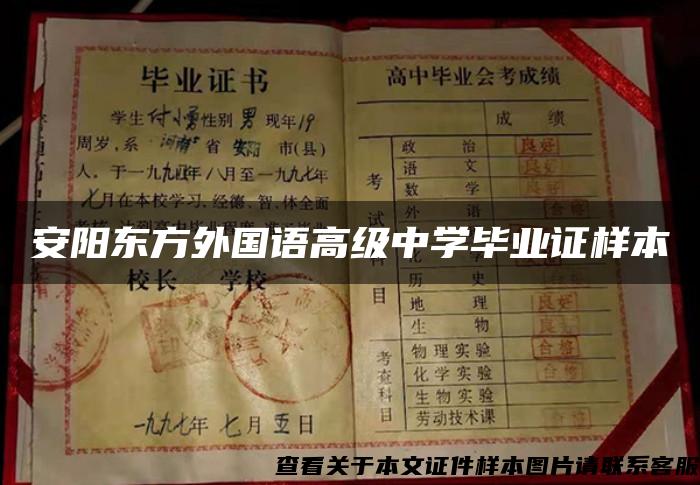 毕业证书
学生付小勇性别男现年19
周岁,系河南省安阳市(县)
人。于一九九四年八月至一九九七年
七月在本校学习,经德、智、体全面
校长 学校
一九九七年七月五日
高中毕业会考成绩
成绩
考试科目
政治 良好
语文 良好
数学 良好
外语 合格
历史 良好
地理 良好
生物 良好
考查科目
物理实验 合格
化学实验 合格
生物实验
劳动技术课 合格
安阳东方外国语高级中学毕业证样本
查看关于本文证件样本图片请联系客服